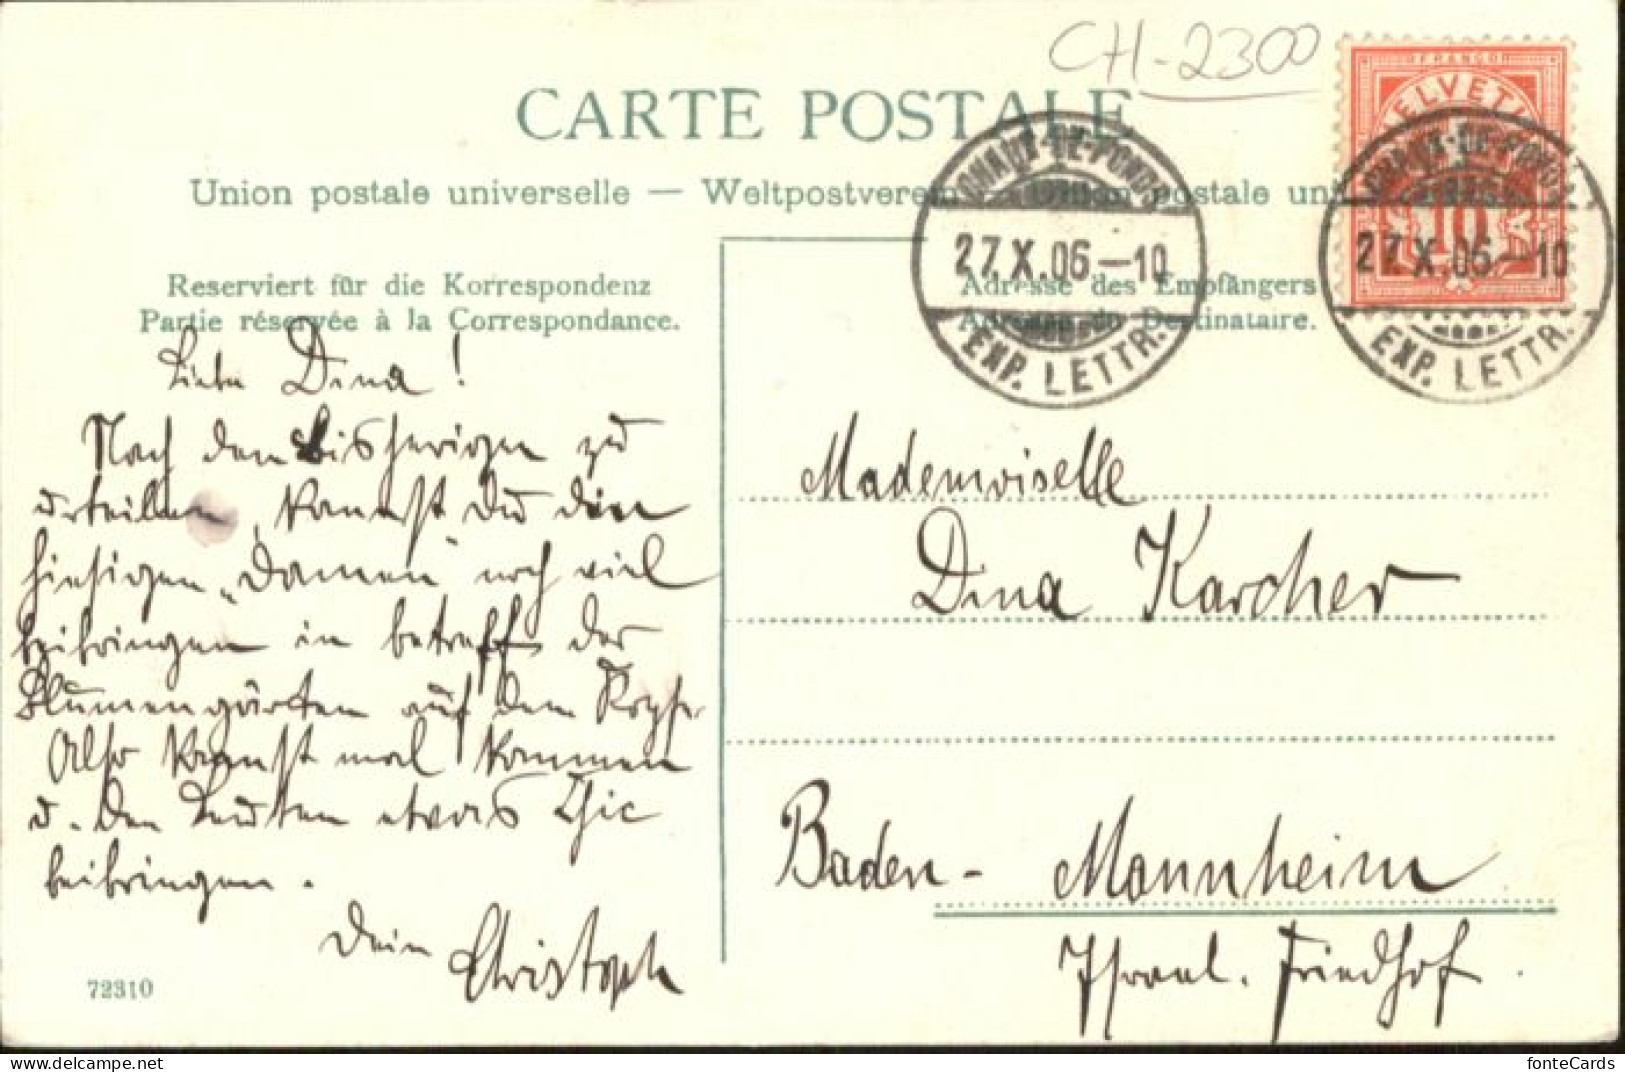 CH-2300
CARTE POSTALE
Union postale universelle — Weltpostverein — Union postale uni
FRANCO
HELVETIA
10
CHAUX-DE-FONDS
27.X.06—10
EXP. LETTR.
CHAUX-DE-FONDS
27.X.06—10
EXP. LETTR.
Reserviert für die Korrespondenz
Partie réservée à la Correspondance.
Adresse des Empfängers
Adresse du Destinataire.
Liebe Dina!
Nach dem bisherigen zu
urteilen, kannst Du den
hiesigen „Damen“ noch viel
beibringen in betreff der
Blumengärten auf dem Kopfe.
Also kannst mal kommen
u. den Leuten etwas Chic
beibringen.
Dein Christoph
Mademoiselle
Dina Karcher
Baden - Mannheim
Israel. Friedhof.
72310
fonteCards